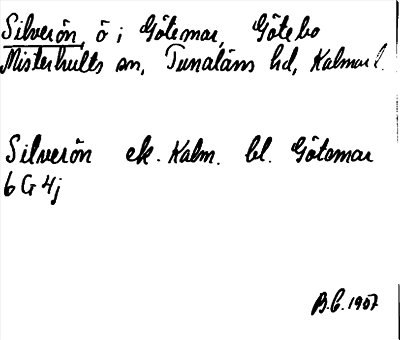 Silverön, ö i Götemar, Götebo
Misterhults sn, Tunaläns hd, Kalmar l.
Silverön ek. Kalm. bl. Götemar
6 G 4j
B.C. 1907